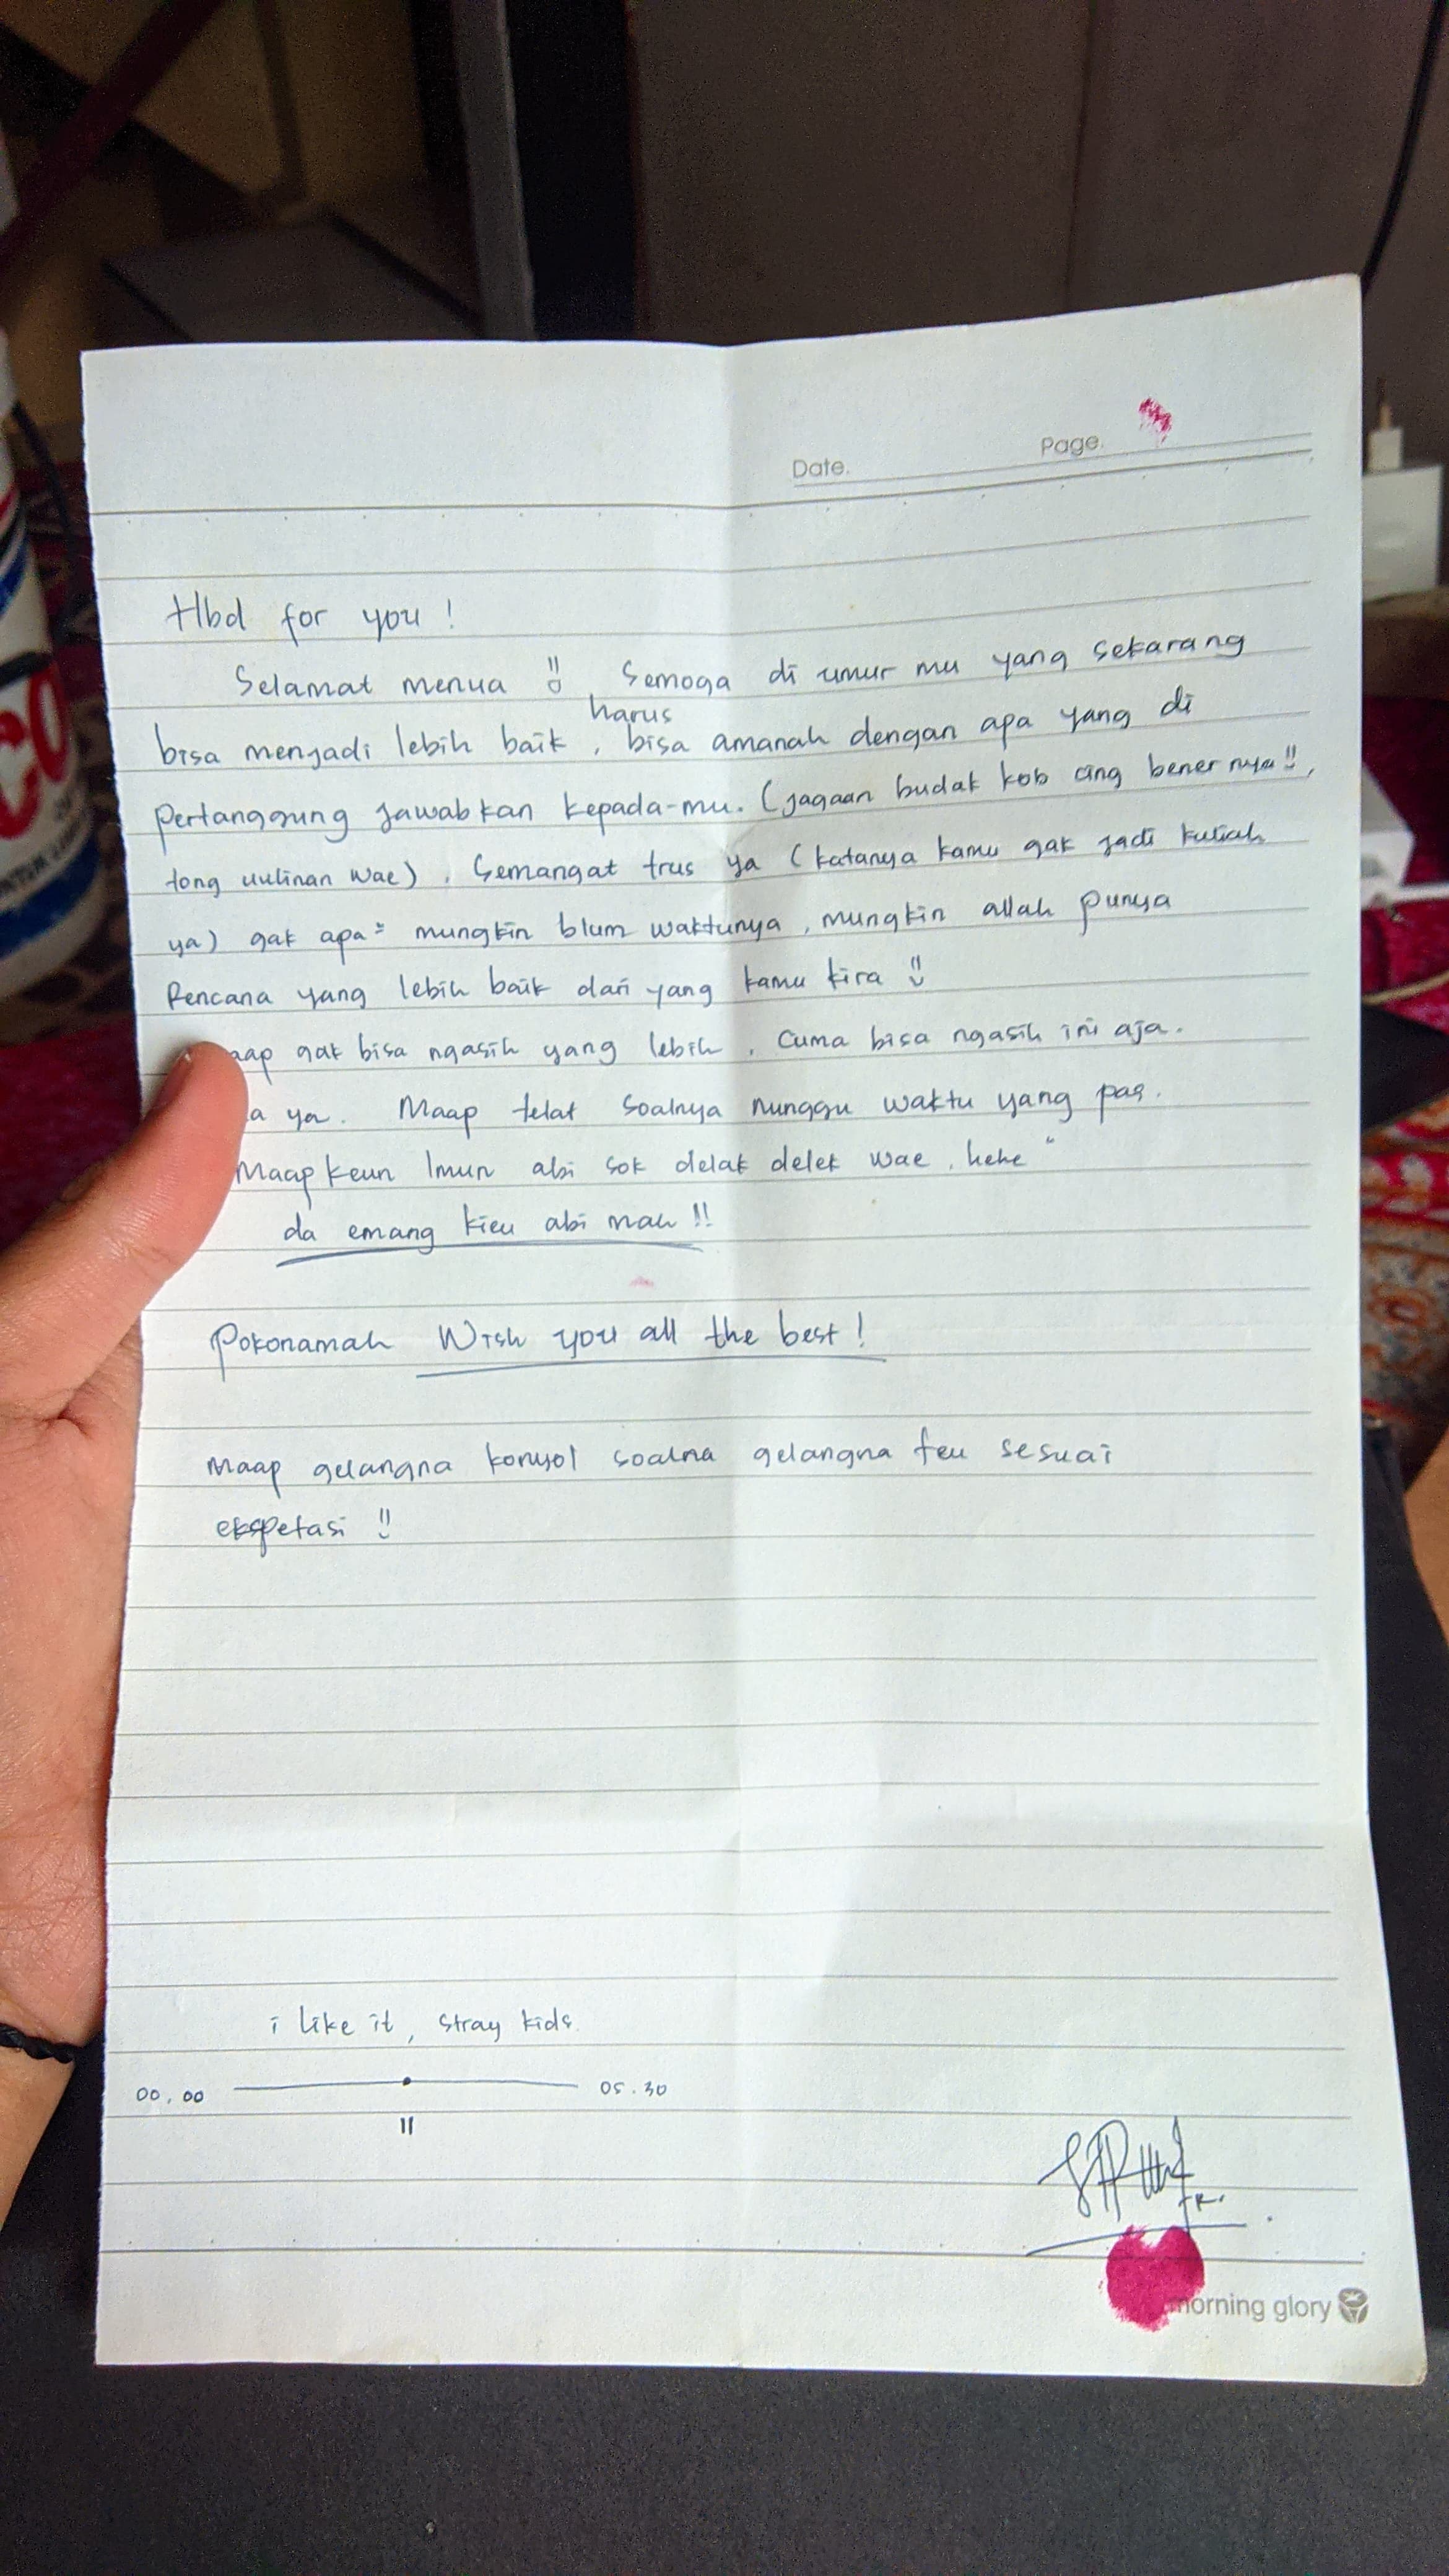 Date.
Page.
Hbd for you !
Selamat menua !! , Semoga di umur mu yang sekarang
harus
bisa menjadi lebih baik , bisa amanah dengan apa yang di
pertanggung jawabkan kepada-mu. (jagaan budak kob cing bener nya !! ,
tong uulinan wae) . Semangat trus ya (katanya kamu gak jadi kuliah
ya) gak apa² mungkin blum waktunya , mungkin allah punya
Rencana yang lebih baik dari yang kamu kira !!
aap gak bisa ngasih yang lebih , Cuma bisa ngasih ini aja .
a ya . Maap telat soalnya nunggu waktu yang pas .
Maap keun lmun abi sok delak delek wae , hehe "
da emang kieu abi mah !!
Pokonamah Wish you all the best !
Maap gelangna konyol soalna gelangna teu sesuai
ekspetasi !!
i like it , stray kids
00 . 00 05 . 30
II
morning glory